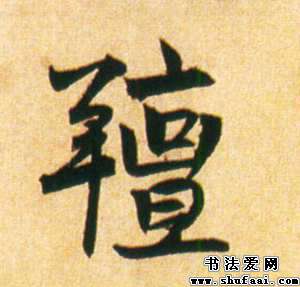 羶
书法爱网
www.shufaai.com